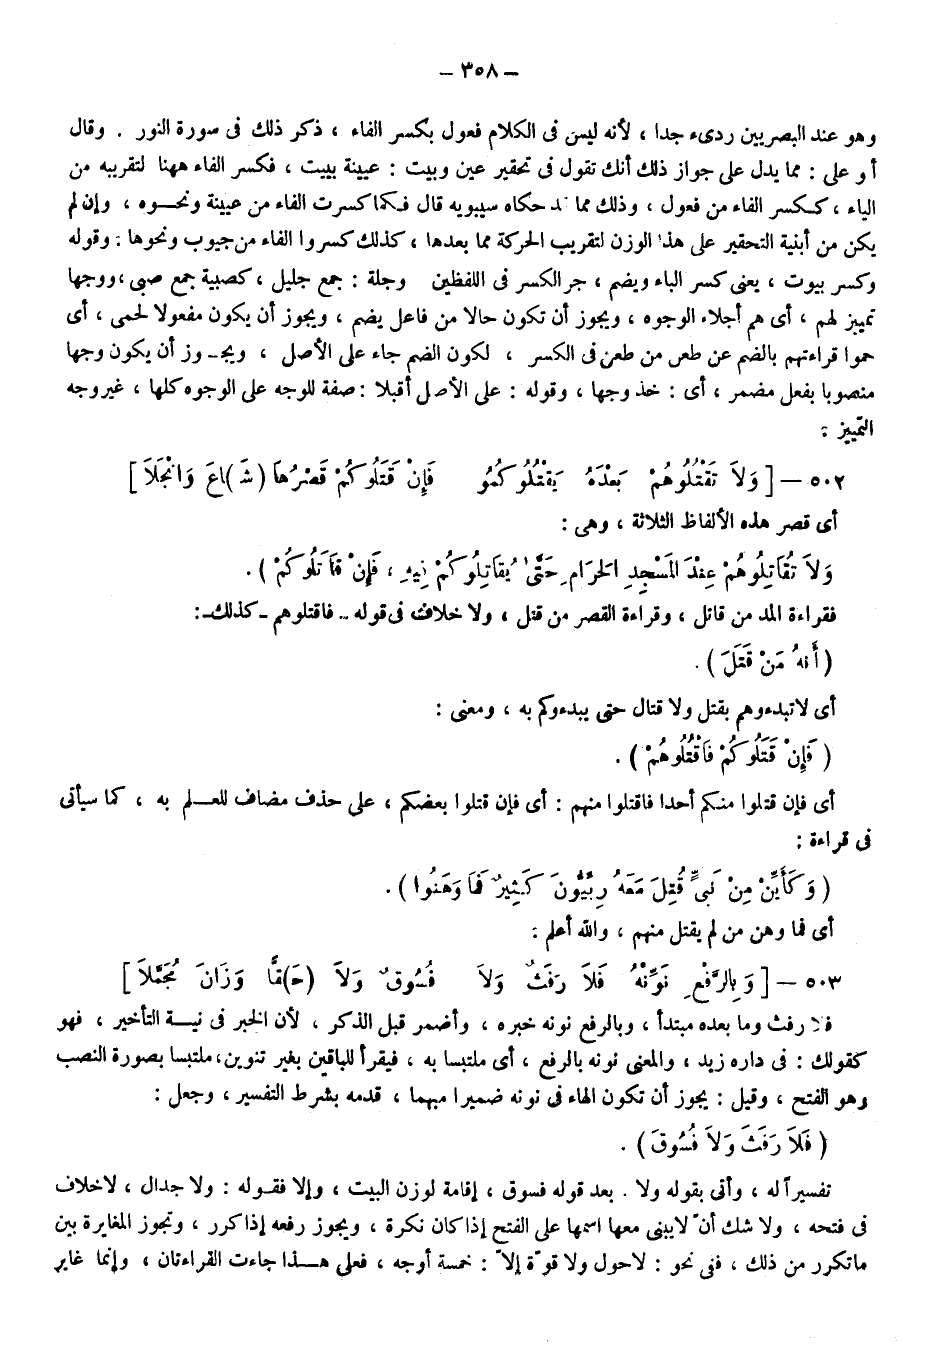 — ٣٥٨ —
وهو عند البصريين ردىء جدا ، لأنه ليس فى الكلام فعول بكسر الفاء ، ذكر ذلك فى سورة النور . وقال
أبو على : مما يدل على جواز ذلك أنك تقول فى تحقير عين وبيت : عيينة بييت ، فكسر الفاء ههنا لتقريبه من
الياء ، ككسر الفاء من فعول ، وذلك مما قد حكاه سيبويه قال فكما كسرت الفاء من عيينة ونحوه ، وإن لم
يكن من أبنية التحقير على هذا الوزن لتقريب الحركة مما بعدها ، كذلك كسروا الفاء من جيوب ونحوها : وقوله
وكسر بيوت ، يعنى كسر الباء ويضم ، جر الكسر فى اللفظين وجلة : جمع جليل ، كصبية جمع صبى ، ووجها
تمييز لهم ، أى هم أجلاء الوجوه ، ويجوز أن تكون حالا من فاعل يضم ، ويجوز أن يكون مفعولا لحمى ، أى
حموا قراءتهم بالضم عن طعن من طعن فى الكسر ، لكون الضم جاء على الأصل ، ويجـوز أن يكون وجها
منصوبا بفعل مضمر ، أى : خذ وجها ، وقوله : على الأصل أقبلا : صفة للوجه على الوجوه كلها ، غير وجه
التمييز :
٥٠٢ — [ وَلاَ تَقْتُلُوهُمْ بَعْدَهُ يَقْتُلُوكُمُو فَإِنْ قَتَلُوكُمْ قَصْرُهَا (شَـ)ـاعَ وَانْجَلاَ ]
أى قصر هذه الألفاظ الثلاثة ، وهى :
وَلاَ تُقَاتِلُوهُمْ عِنْدَ المَسْجِدِ الحَرَامِ حَتَّى يُقَاتِلُوكُمْ فِيهِ ، فَإِنْ قَاتَلُوكُمْ ) .
فقراءة المد من قاتل ، وقراءة القصر من قتل ، ولا خلاف فى قوله .. فاقتلوهم ـ كذلك ـ :
( أَنهُ مَنْ قَتَلَ ) .
أى لاتبدءوهم بقتل ولا قتال حتى يبدءوكم به ، ومعنى :
( فَإِنْ قَتَلُوكُمْ فَاقْتُلُوهُمْ ) .
أى فإن قتلوا منكم أحدا فاقتلوا منهم : أى فإن قتلوا بعضكم ، على حذف مضاف للعـلم به ، كما سيأتى
فى قراءة :
( وَكَأَيِّنْ مِنْ نَبىٍّ قُتِلَ مَعَهُ رِبِّيُّونَ كَثِيرٌ فَمَا وَهَنُوا ) .
أى فما وهن من لم يقتل منهم ، والله أعلم :
٥٠٣ — [ وَبِالرَّفْعِ نَوِّنْهُ فَلاَ رَفَثٌ وَلاَ فُسُوقٌ وَلاَ (حَـ)ـقًّا وَزَانَ مُجَمَّلاَ ]
فلا رفث وما بعده مبتدأ ، وبالرفع نونه خبره ، وأضمر قبل الذكر ، لأن الخبر فى نيـة التأخير ، فهو
كقولك : فى داره زيد ، والمعنى نونه بالرفع ، أى ملتبسا به ، فيقرأ للباقين بغير تنوين، ملتبسا بصورة النصب
وهو الفتح ، وقيل : يجوز أن تكون الهاء فى نونه ضميرا مبهما ، قدمه بشرط التفسير ، وجعل :
( فَلاَ رَفَثَ وَلاَ فُسُوقَ ) .
تفسيراً له ، وأتى بقوله ولا . بعد قوله فسوق ، إقامة لوزن البيت ، وإلا فقـوله : ولا جدال ، لاخلاف
فى فتحه ، ولا شك أنّ لايبنى معها اسمها على الفتح إذا كان نكرة ، ويجوز رفعه إذا كرر ، وتجوز المغايرة بين
ماتكرر من ذلك ، فنى نحو : لاحول ولا قوّة إلاّ : خمسة أوجه ، فعلى هـذا جاءت القراءتان ، وإنما غاير